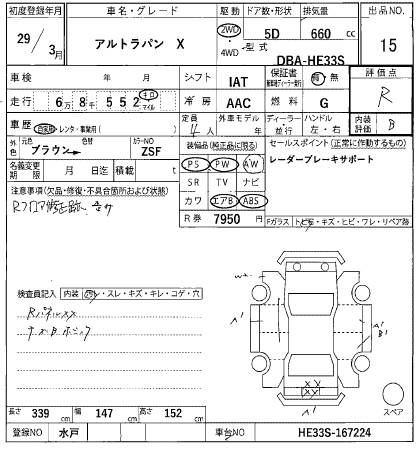 初度登録年月 車名・グレード 駆動 ドア数・形状 排気量 出品NO.
29/3月 アルトラパン X 2WD 4WD 5D 660 cc 15
型式 DBA-HE33S
車検 年 月 シフト IAT 保証書 有 無 評価点
走行 6万8千552 キロ マイル 冷房 AAC 燃料 G R
車歴 自家用・レンタ・事業用( ) 定員 4人 外車モデル年 年 ディーラー 並行 ハンドル 左・右 内装評価 B
外色 元色 ブラウン 色替 カラーNO ZSF 装備品(純正品に限る) セールスポイント(正常に作動するもの)
名義変更期限 月 日迄 積載 t PS PW AW レーダーブレーキサポート
注意事項(欠品・修復・不具合箇所および状態) SR TV ナビ
Rフロア修正跡 カワ エアB ABS
R券 7950 円 Fガラス トビ石・キズ・ヒビ・ワレ・リペア跡
検査員記入 内装 スレ・キズ・キレ・コゲ・穴
RパネルXX
A1
A1
B1
XX
XX
A1
スペア
長さ 339 cm 幅 147 cm 高さ 152 cm
登録NO 水戸 車台NO HE33S-167224